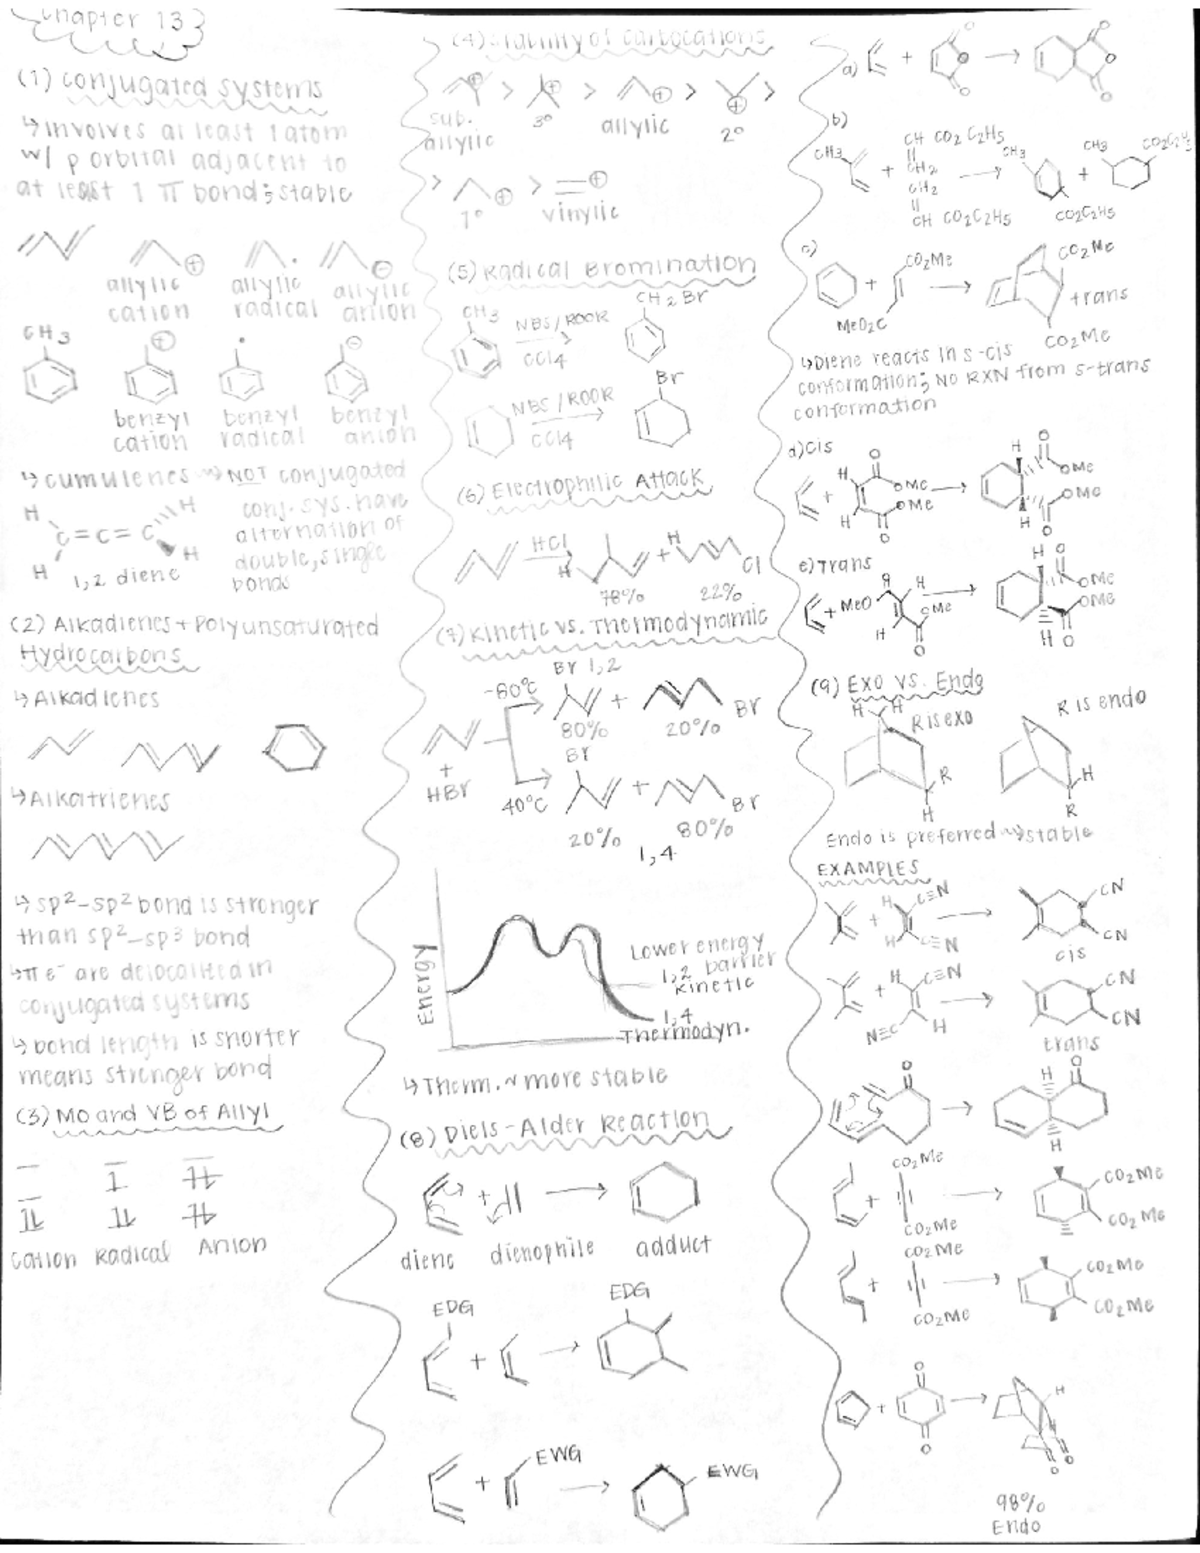 Chapter 13
(1) Conjugated Systems
↳ involves at least 1 atom
w/ p orbital adjacent to
at least 1 π bond; stable
allylic cation
allylic radical
allylic anion
CH3
benzyl cation
benzyl radical
benzyl anion
↳ cumulenes ⇝ NOT conjugated
H C=C=C H
H H
1,2 diene
conj. sys. have
alternation of
double, single
bonds
(2) Alkadienes + Polyunsaturated
Hydrocarbons
↳ Alkadienes
↳ Alkatrienes
↳ sp²-sp² bond is stronger
than sp²-sp³ bond
↳ π e⁻ are delocalized in
conjugated systems
↳ bond length is shorter
means stronger bond
(3) MO and VB of Allyl
Cation Radical Anion
(4) Stability of Carbocations
⊕ > ⊕ > ⊕ > ⊕ >
sub. allylic
3°
allylic
2°
> ⊕ > ⊕
1°
vinylic
(5) Radical Bromination
CH3
NBS/ROOR
CCl4
CH2Br
NBS/ROOR
CCl4
Br
(6) Electrophilic Attack
HCl
H + H Cl
78% 22%
(7) Kinetic vs. Thermodynamic
Br 1,2
-80°C
+ Br
80% 20%
+
HBr
Br
40°C
+ Br
20% 80%
1,4
Energy
Lower energy
1,2 barrier
kinetic
1,4
Thermodyn.
↳ Therm. ~ more stable
(8) Diels-Alder Reaction
+
diene dienophile adduct
EDG EDG
+
+ EWG EWG
a) + O O O O O O
b)
CH3 + CH CO2C2H5
CH2
CH2
CH CO2C2H5
CH3
CO2C2H5
+
CH3 CO2C2H5
c)
+ CO2Me
MeO2C
CO2Me
trans
CO2Me
↳ Diene reacts in s-cis
conformation; NO RXN from s-trans
conformation
d) Cis
+ H O OMe
H OMe O
H O OMe
OMe
H O
e) Trans
+ MeO H
H OMe O
H O OMe
OMe
H O
(9) Exo vs. Endo
H H
R is exo
R
H
R is endo
H
R
Endo is preferred ⇝ stable
EXAMPLES
+ H C≡N
H C≡N
CN
CN
cis
+ H C≡N
N≡C H
CN
CN
trans
O
H O
H
+ CO2Me
CO2Me
CO2Me
CO2Me
+ CO2Me
CO2Me
CO2Me
CO2Me
+ O
O
H
O
O
98%
Endo